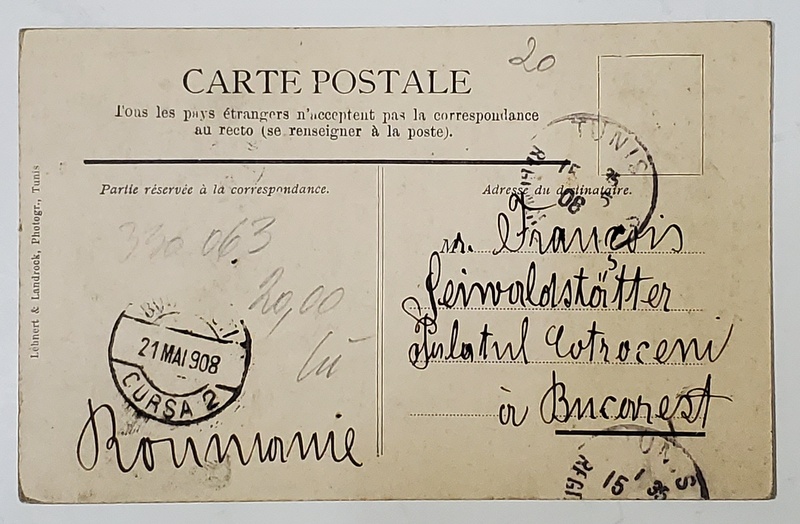 20
CARTE POSTALE
Tous les pays étrangers n'acceptent pas la correspondance
au recto (se renseigner à la poste).
Partie réservée à la correspondance.
Adresse du destinataire.
Lehnert & Landrock, Photogr., Tunis
TUNIS
15
08
M. François
Seiwaldstätter
Palatul Cotroceni
à Bucarest
Roumanie
330 063
20,00
21 MAI 908
CURSA 2
15